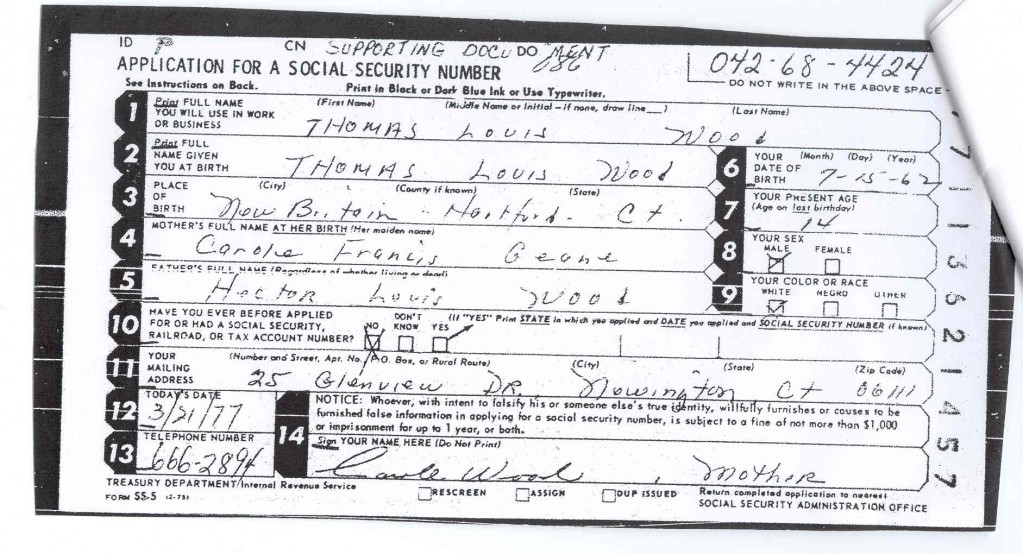 ID P CN SUPPORTING DOCUDO MENT
086
APPLICATION FOR A SOCIAL SECURITY NUMBER 042-68-4424
DO NOT WRITE IN THE ABOVE SPACE
See Instructions on Back. Print in Black or Dark Blue Ink or Use Typewriter.
1 Print FULL NAME YOU WILL USE IN WORK OR BUSINESS (First Name) (Middle Name or Initial – if none, draw line__) (Last Name)
THOMAS Louis Wood
2 Print FULL NAME GIVEN YOU AT BIRTH THOMAS Louis Wood
6 YOUR DATE OF BIRTH (Month) (Day) (Year) 7-15-62
3 PLACE OF BIRTH (City) (County if known) (State)
New Britain - Hartford - Ct.
7 YOUR PRESENT AGE (Age on last birthday) 14
4 MOTHER'S FULL NAME AT HER BIRTH (Her maiden name)
Francis
8 YOUR SEX MALE FEMALE
5 FATHER'S FULL NAME (Regardless of whether living or dead)
Hector Louis Wood
9 YOUR COLOR OR RACE WHITE NEGRO OTHER
10 HAVE YOU EVER BEFORE APPLIED FOR OR HAD A SOCIAL SECURITY, RAILROAD, OR TAX ACCOUNT NUMBER? NO DON'T KNOW YES (If "YES" Print STATE in which you applied and DATE you applied and SOCIAL SECURITY NUMBER if known)
11 YOUR MAILING ADDRESS (Number and Street, Apt. No., P.O. Box, or Rural Route) (City) (State) (Zip Code)
25 Glenview DR Newington Ct 06111
12 TODAY'S DATE 3/21/77
NOTICE: Whoever, with intent to falsify his or someone else's true identity, willfully furnishes or causes to be
furnished false information in applying for a social security number, is subject to a fine of not more than $1,000
or imprisonment for up to 1 year, or both.
13 TELEPHONE NUMBER 666-2894
14 Sign YOUR NAME HERE (Do Not Print)
Carole Wood, Mother
TREASURY DEPARTMENT/Internal Revenue Service
FORM SS-5 (2-75)
RESCREEN ASSIGN DUP ISSUED
Return completed application to nearest
SOCIAL SECURITY ADMINISTRATION OFFICE